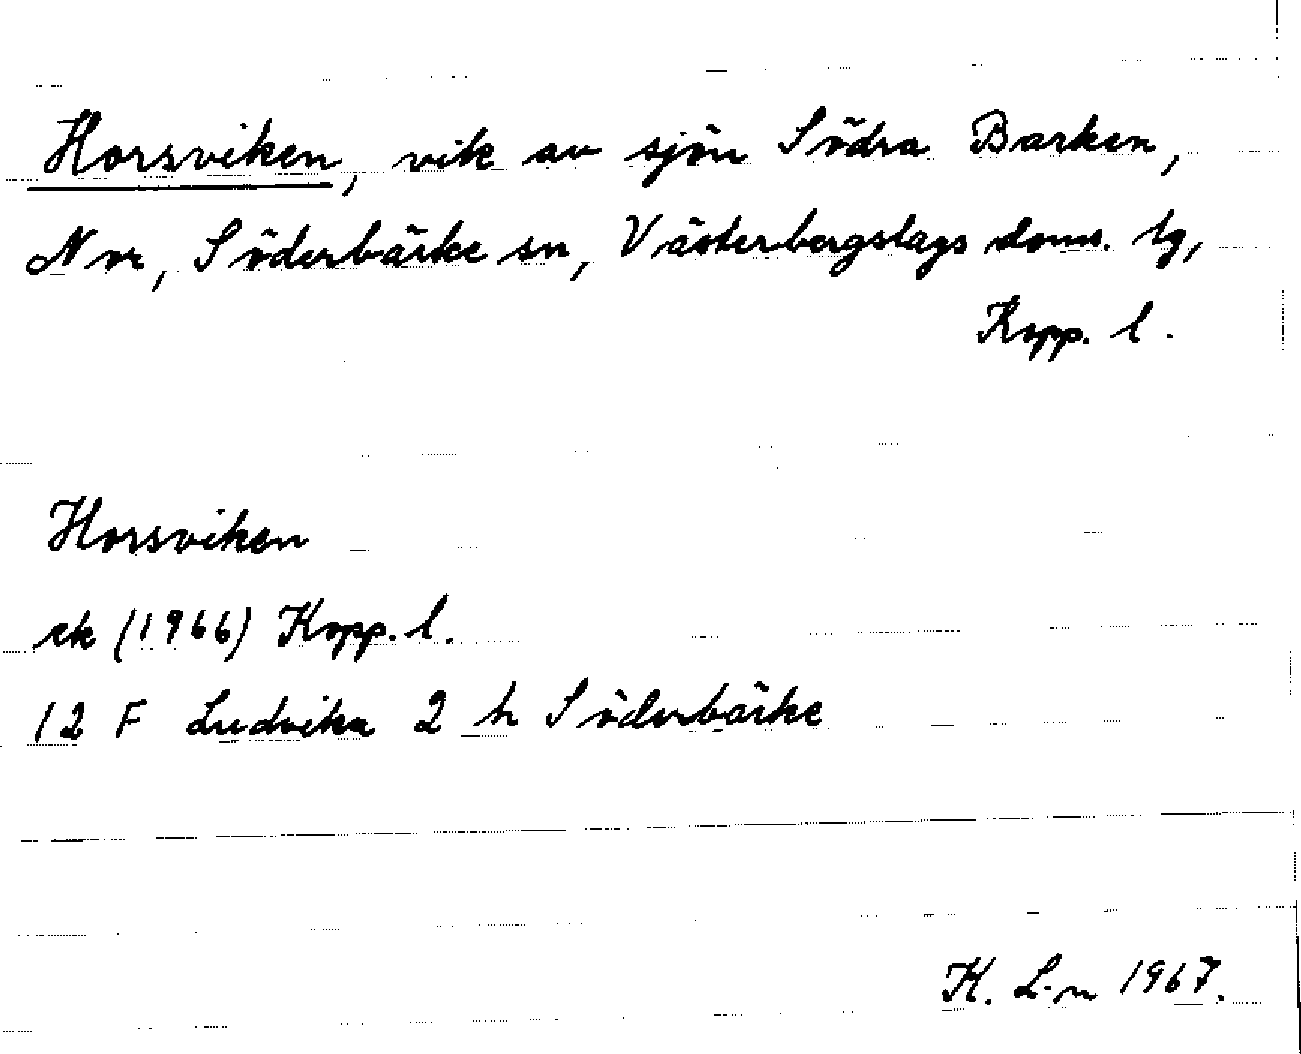 Horsviken, vik av sjön Södra Barken,
Nor, Söderbärke sn, Västerbergslags doms. lg,
Kopp. l.
Horsviken
ek (1966) Kopp. l.
12 F Ludvika 2 h Söderbärke
K. L-n 1967.